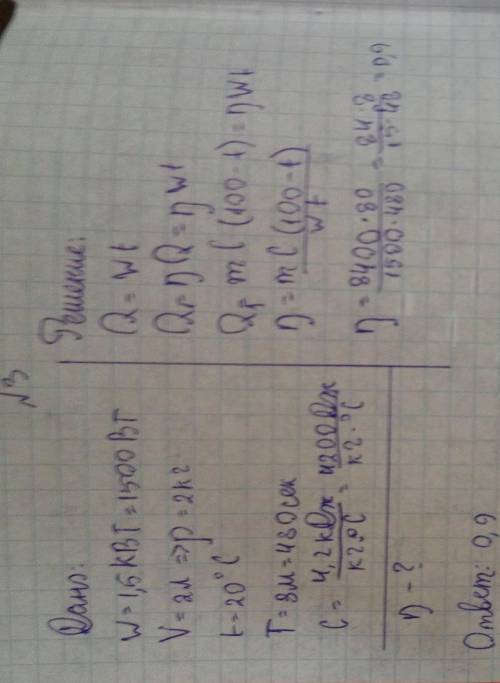 √3
Дано:
W = 1,5кВТ = 1500ВТ
V = 2л => p = 2кг
t = 20°C
T = 8м = 480сек
C = 4,2кДж/кг·°C = 4200Дж/кг·°C
η - ?
Решение:
Q = Wt
Q₁ = ηQ = ηWt
Q₁ = mC(100-t) = ηWt
η = mC(100-t)/Wt
η = 8400·80/1500·480 = 84·8/15·48 = 0,9
Ответ: 0,9